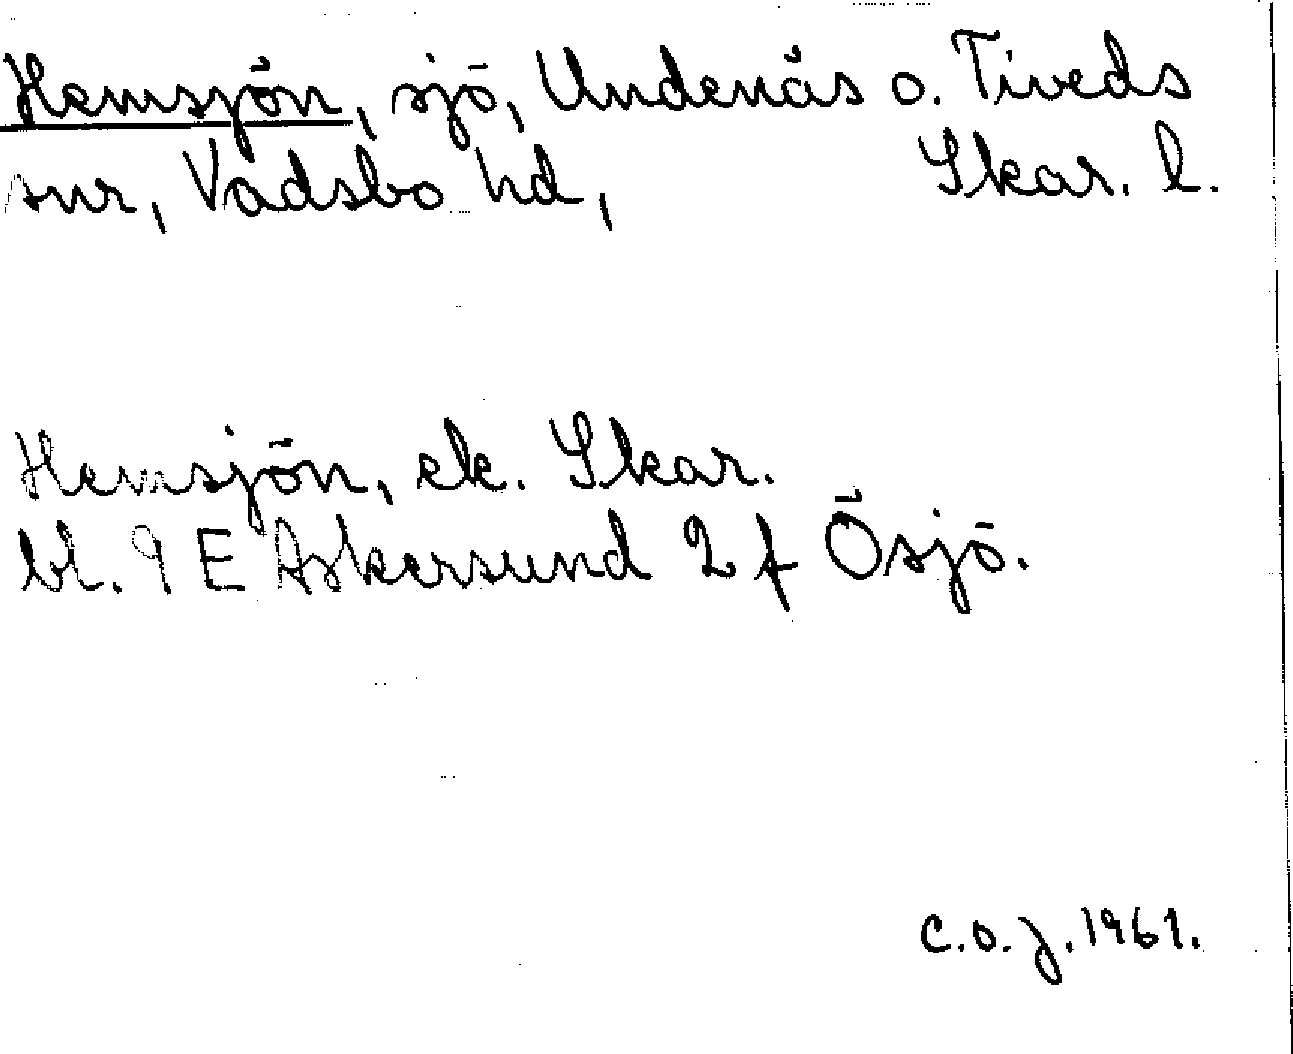 Hemsjön, sjö, Undenäs o. Tiveds
snr, Vadsbo hd, Skar. l.
Hemsjön, ek. Skar.
bl. 9 E Askersund 2 f Ösjö.
C.O.J. 1961.